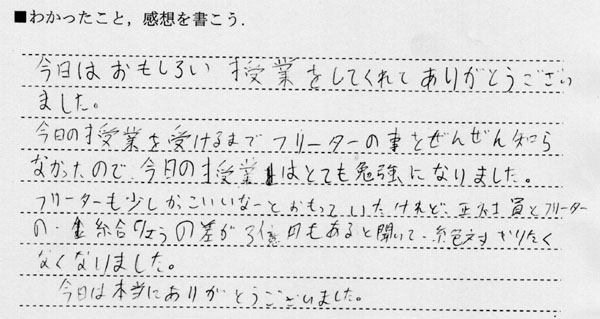 ■わかったこと，感想を書こう.
今日はおもしろい授業をしてくれてありがとうござい
ました。
今日の授業を受けるまでフリーターの事をぜんぜん知ら
なかったので、今日の授業はとても勉強になりました。
フリーターも少しかっこいいなーとおもっていたけれど、正社員とフリーター
の給合りょうの差が3億円もあると聞いて、絶対なりたく
なくなりました。
今日は本当にありがとうございました。